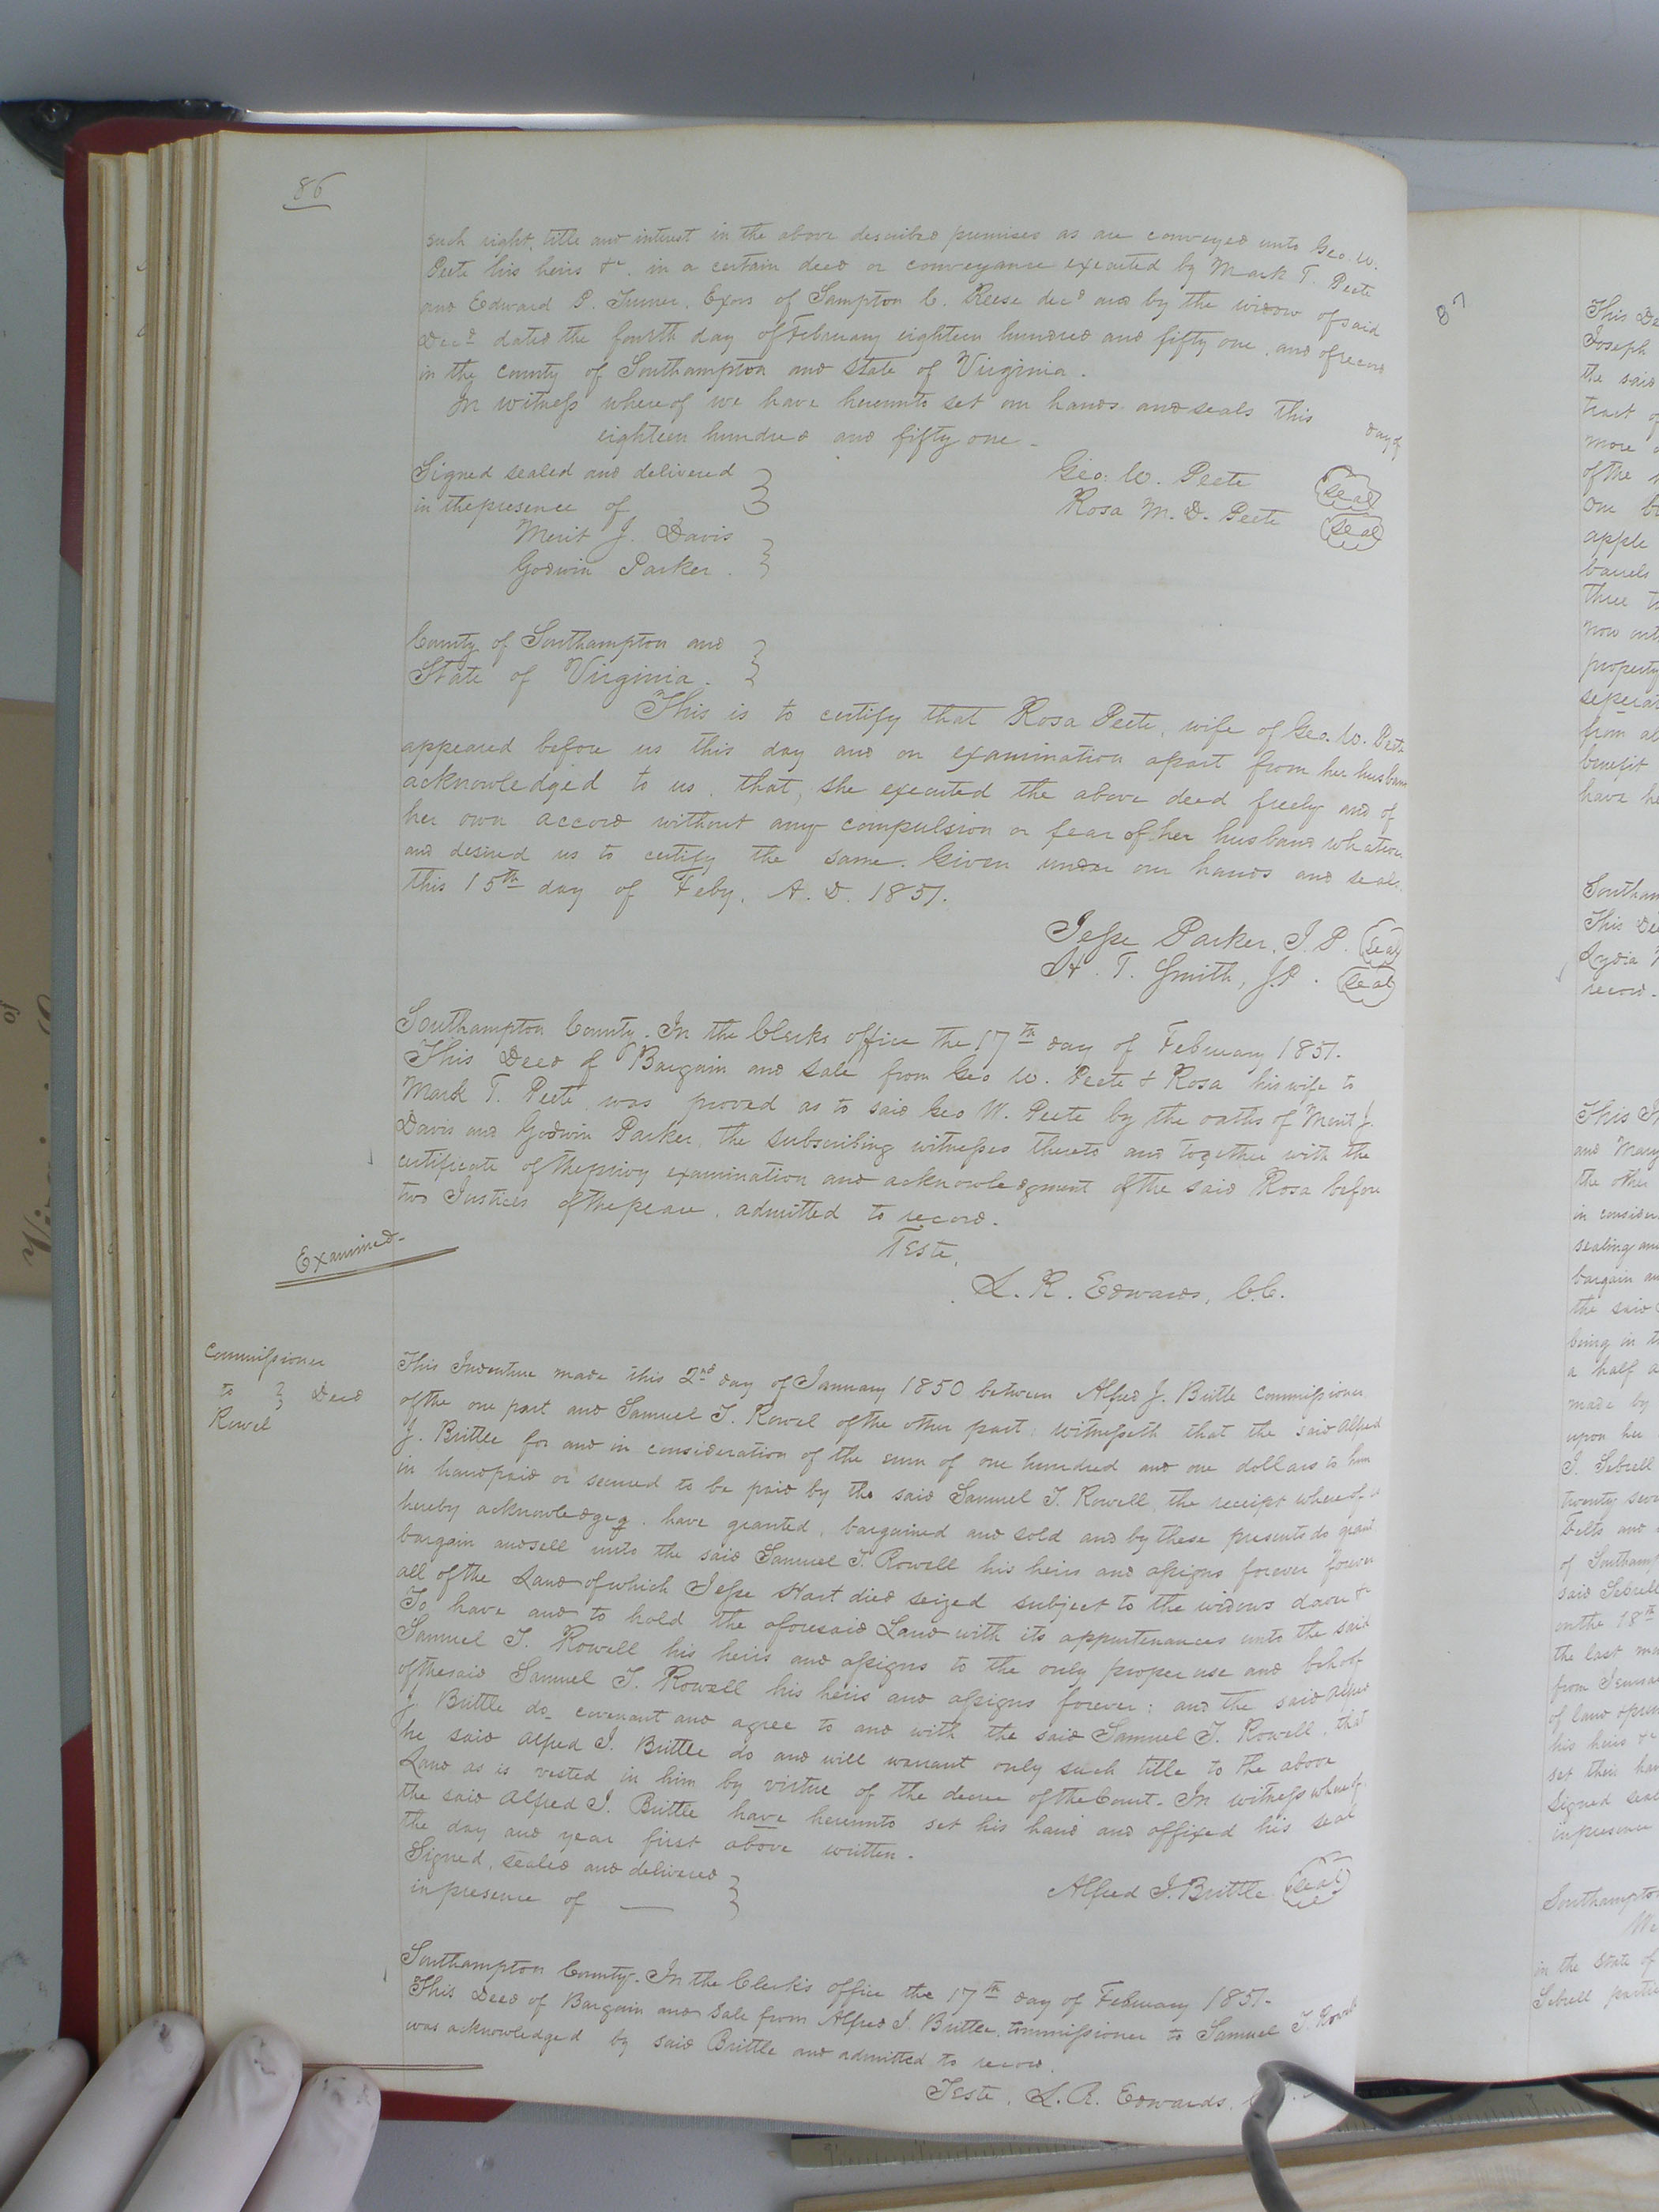 86
such right, title and interest in the above described premises as are conveyed unto Geo. W.
Peete his heirs &c. in a certain deed or conveyance executed by Mark T. Peete
and Edward P. Turner, Exors of Sampton C. Reese decd and by the widow of said
Decd dated the fourth day of February eighteen hundred and fifty one, and of record
in the County of Southampton and State of Virginia.
In witness whereof we have hereunto set our hands and seals this day of
eighteen hundred and fifty one.
Signed sealed and delivered
in the presence of
Merit J. Davis
Godwin Parker.
Geo. W. Peete seal
Rosa M. D. Peete seal
County of Southampton and
State of Virginia.
This is to certify that Rosa Peete, wife of Geo. W. Peete
appeared before us this day and on examination apart from her husband
acknowledged to us, that, she executed the above deed freely and of
her own accord without any compulsion or fear of her husband whatever
and desired us to certify the same. Given under our hands and seals
this 15th day of Feby. A. D. 1851.
Jesse Parker, J. P. seal
H. T. Smith, J.P. seal
Southampton County. In the Clerks office the 17th day of February 1851.
This Deed of Bargain and Sale from Geo W. Peete & Rosa his wife to
Mark T. Peete was proved as to said Geo W. Peete by the oaths of Merit J.
Davis and Godwin Parker, the subscribing witnesses thereto and together with the
certificate of the privy examination and acknowledgment of the said Rosa before
two Justices of the peace, admitted to record.
Teste,
L. R. Edwards, C.C.
Examined
Commissioner
to } Deed
Rowel
This Indenture made this 2nd day of January 1850 between Alfred J. Brittle Commissioner
of the one part and Samuel T. Rowel of the other part: Witnesseth that the said Alfred
J. Brittle for and in consideration of the sum of one hundred and one dollars to him
in hand paid or secured to be paid by the said Samuel T. Rowell, the receipt whereof is
hereby acknowledged, have granted, bargained and sold and by these presents do grant
bargain and sell unto the said Samuel T. Rowell his heirs and assigns forever forever
all of the Land of which Jesse Hart died seized subject to the widows dower &c
To have and to hold the aforesaid Land with its appurtenances unto the said
Samuel T. Rowell his heirs and assigns to the only proper use and behoof
of the said Samuel T. Rowell his heirs and assigns forever: and the said Alfred
J Brittle do covenant and agree to and with the said Samuel T. Rowell, that
he said Alfred J. Brittle do and will warrant only such title to the above
Land as is vested in him by virtue of the decree of the Court. In witness whereof
the said Alfred J. Brittle have hereunto set his hand and affixed his seal
the day and year first above written.
Signed, sealed and delivered
in presence of
Alfred J. Brittle seal
Southampton County. In the Clerk's office the 17th day of February 1851.
This Deed of Bargain and Sale from Alfred J. Brittle, Commissioner to Samuel T. Rowel
was acknowledged by said Brittle and admitted to record.
Teste, L. R. Edwards,
87
Joseph
the said
more
of the
apple
barrels
property
from
benefit
have
This
record.
and Mary
the other
bargain
the said
being in
a half
made by
upon her
of Southamp
said Sebrell
on the 18th
of land
his heirs &c
set their
Signed
in presence
Southampton
in the State of
Sebrell